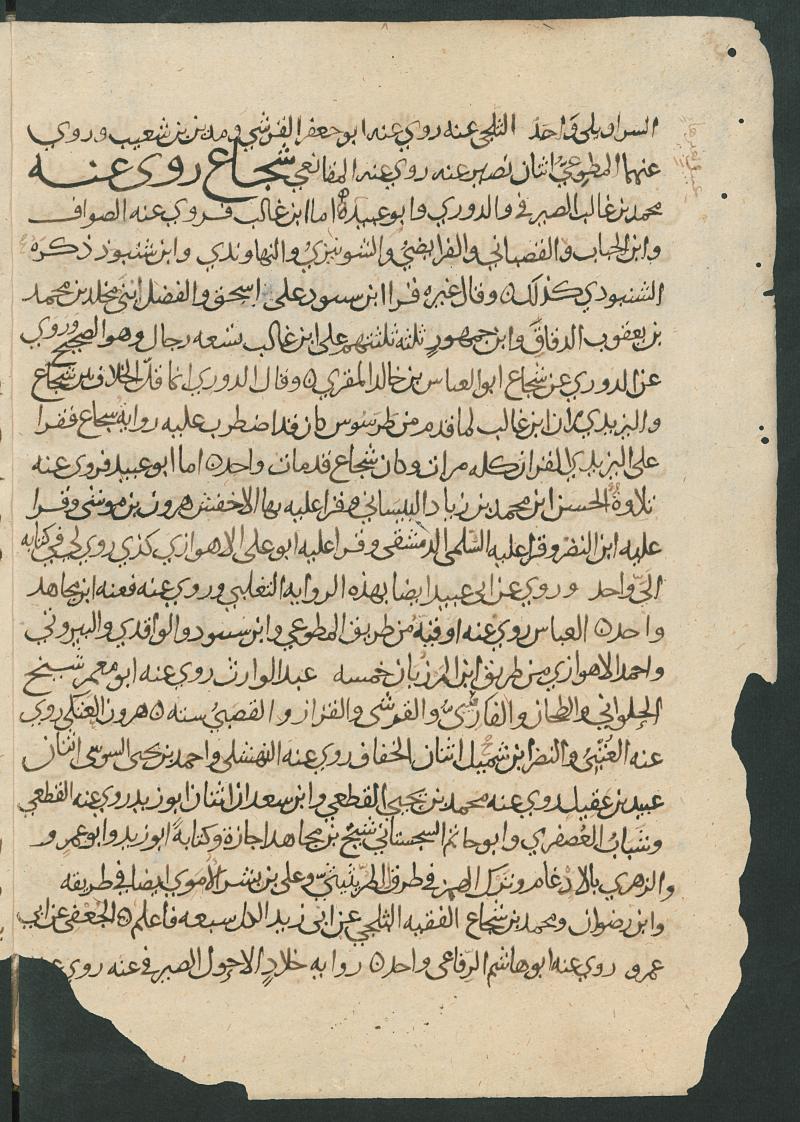 السراويلي واحد الثلجي عنه روي عنه ابو جعفر القرشي ومدين بن شعيب وروي
عنهما المطوعي اثنان نصير عنه روي عنه المقانعي شجاع روى عنه
محمد بن غالب الصيرفي والدوري وابو عبيدة اما ابن غالب فروي عنه الصواف
وابن الحباب والقصباني والفرايضي والشونيزي والنهاوندي وابن شنبوذ ذكره
الشنبوذي كذلك وقال غيره قرا ابن على اسحق والفضل ابني مخلد بن محمد
بن يعقوب الدقاق وابن جمهور ثلثه ثلثتهم على ابن غالب تسعه رجال وهو الصحيح وروي
عن الدوري عن شجاع ابو العباس بن خالد المقري وقال الدوري انما قل الخلاف بين شجاع
واليزيدي لان ابن غالب لما قدم من طرسوس كان قد اضطرب عليه رواية شجاع فقرا
على اليزيدي القران كله مرات وكان شجاع قد مات واحد اما ابو عبيد فروي عنه
تلاوة الحسن ابن محمد بن زياد قرا عليه بها الاخفش هرون بن موسى وقرا
عليه ابن النضر وقرا عليه السلمي الدمشقي وقرا عليه ابو على الاهوازي كذى روي لي في كتابه
الي واحد وروي عن ابي عبيد ايضا بهذه الروايه التغلبي وروي عنه فعنه ابن مجاهد
واحد العباس روي عنه اوقية من طريق المطوعي وابن والواقدي والبيروتي
واحمد الاهوازي من طريق ابن المرزبان خمسه عبد الوارث روي عنه ابو معمر شيخ
الحلواني والطحاز والفارسي والقرشي والقزاز والقصبي سته هرون العتكي روي
عنه العتبي والنضر ابن شميل اثنان الخفاف روي عنه النهشلي واحمد بن يحيى السوسي اثنان
عبيد بن عقيل روي عنه محمد بن يحيى القطعي وابن سعدان اثنان ابو زيد روي عنه القطعي
وشباب العصفري وابو حاتم السجستاني شيخ بن مجاهد اجازة وكتابة ابو زيد وابو عمر و
والزهري بالادغام وترك الهمز في طرق الطريثيثي وعلى بن بشر الاموي ايضا في طريقه
وابن رضوان ومحمد بن شجاع الفقيه الثلجي عن ابي زيد الكل سبعه فاعلم الجعفي عن ابي
عمرو روي عنه ابو هاشم الرفاعي واحد روايه خلاد الاحول الصيرفي عنه روي